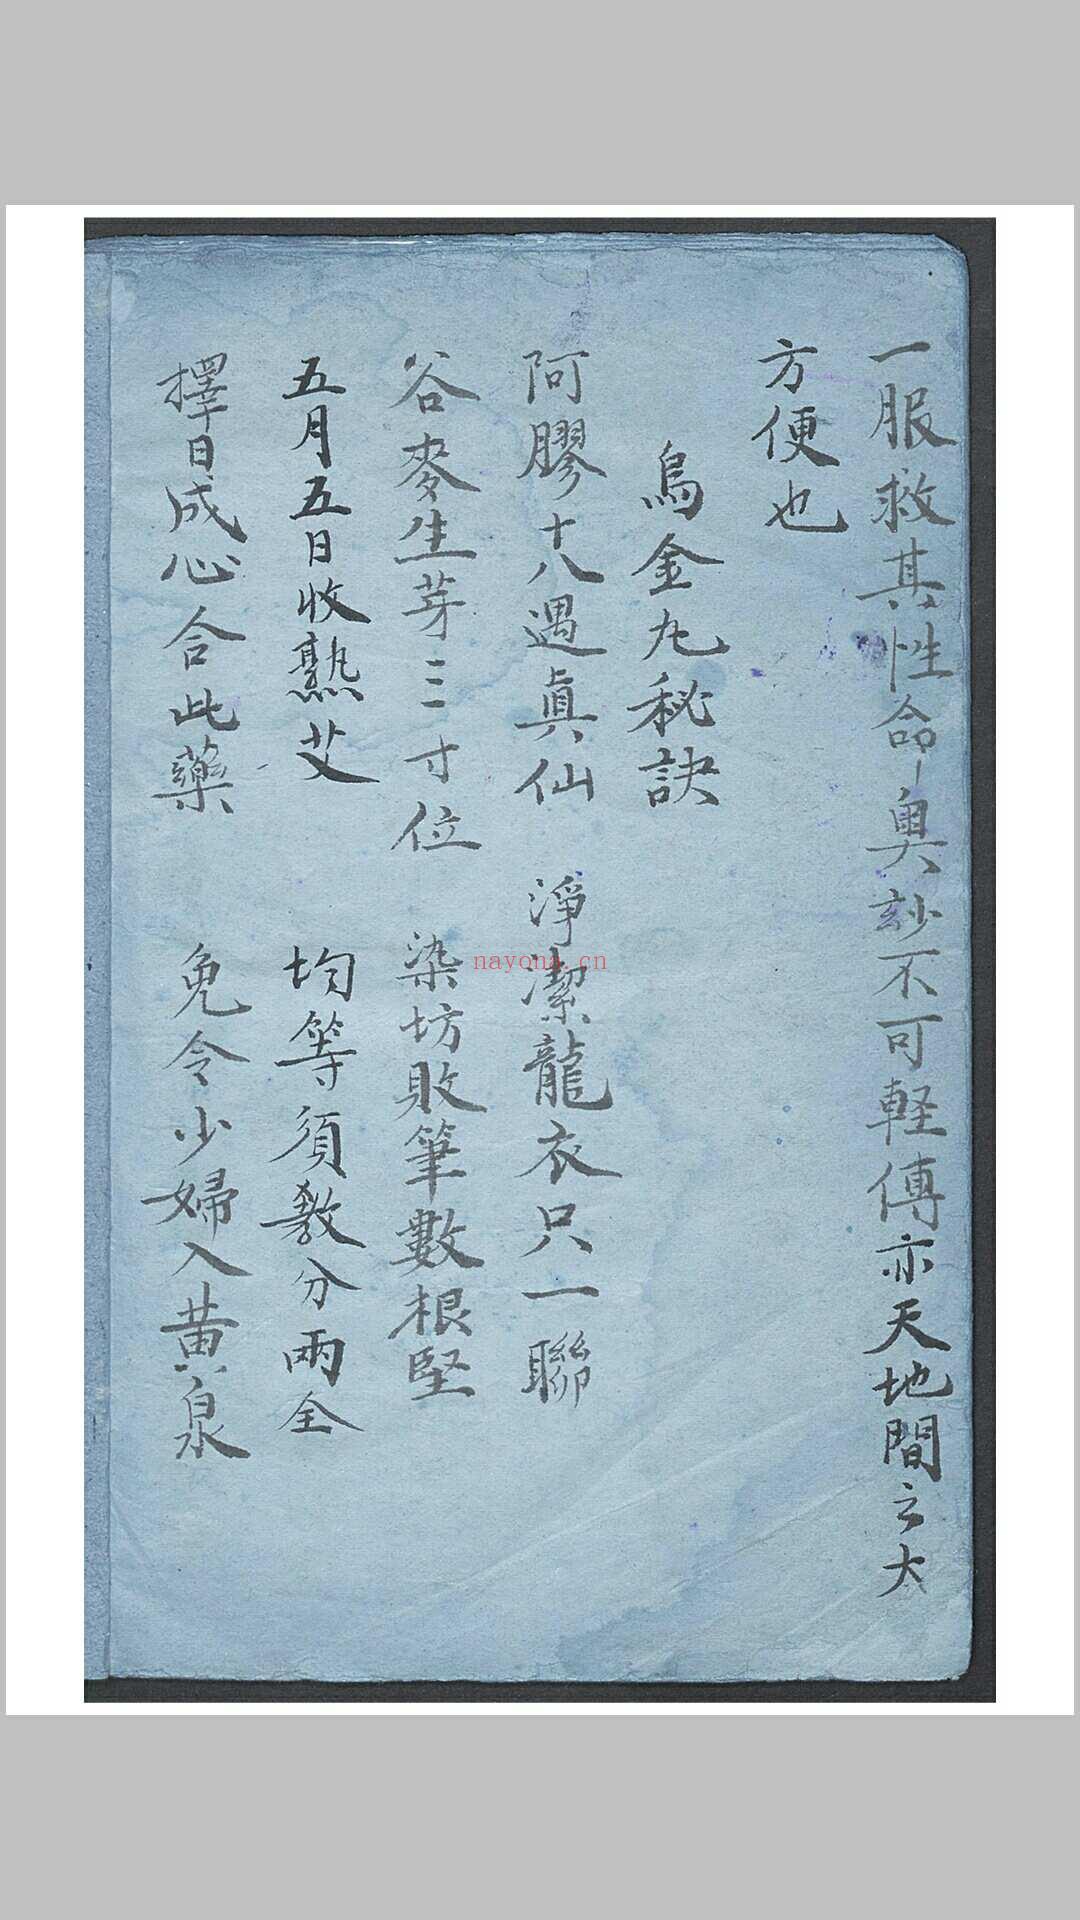 一服救其性命奧妙不可軽傳亦天地間之大
方便也
烏金丸秘訣
阿膠十八遇眞仙 淨潔龍衣只一聯
谷麥生芽三寸位 染坊敗筆數根堅
五月五日收熟艾 均等須教分兩全
擇日成心合此藥 免令少婦入黄泉
nayona.cn